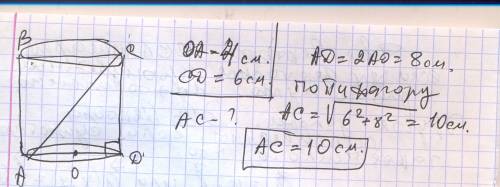 B C
OA = 4 см.
CD = 6 см.
AC - ?
A O D
AD = 2AO = 8 см.
по Пифагору
AC = √6²+8² = 10 см.
AC = 10 см.